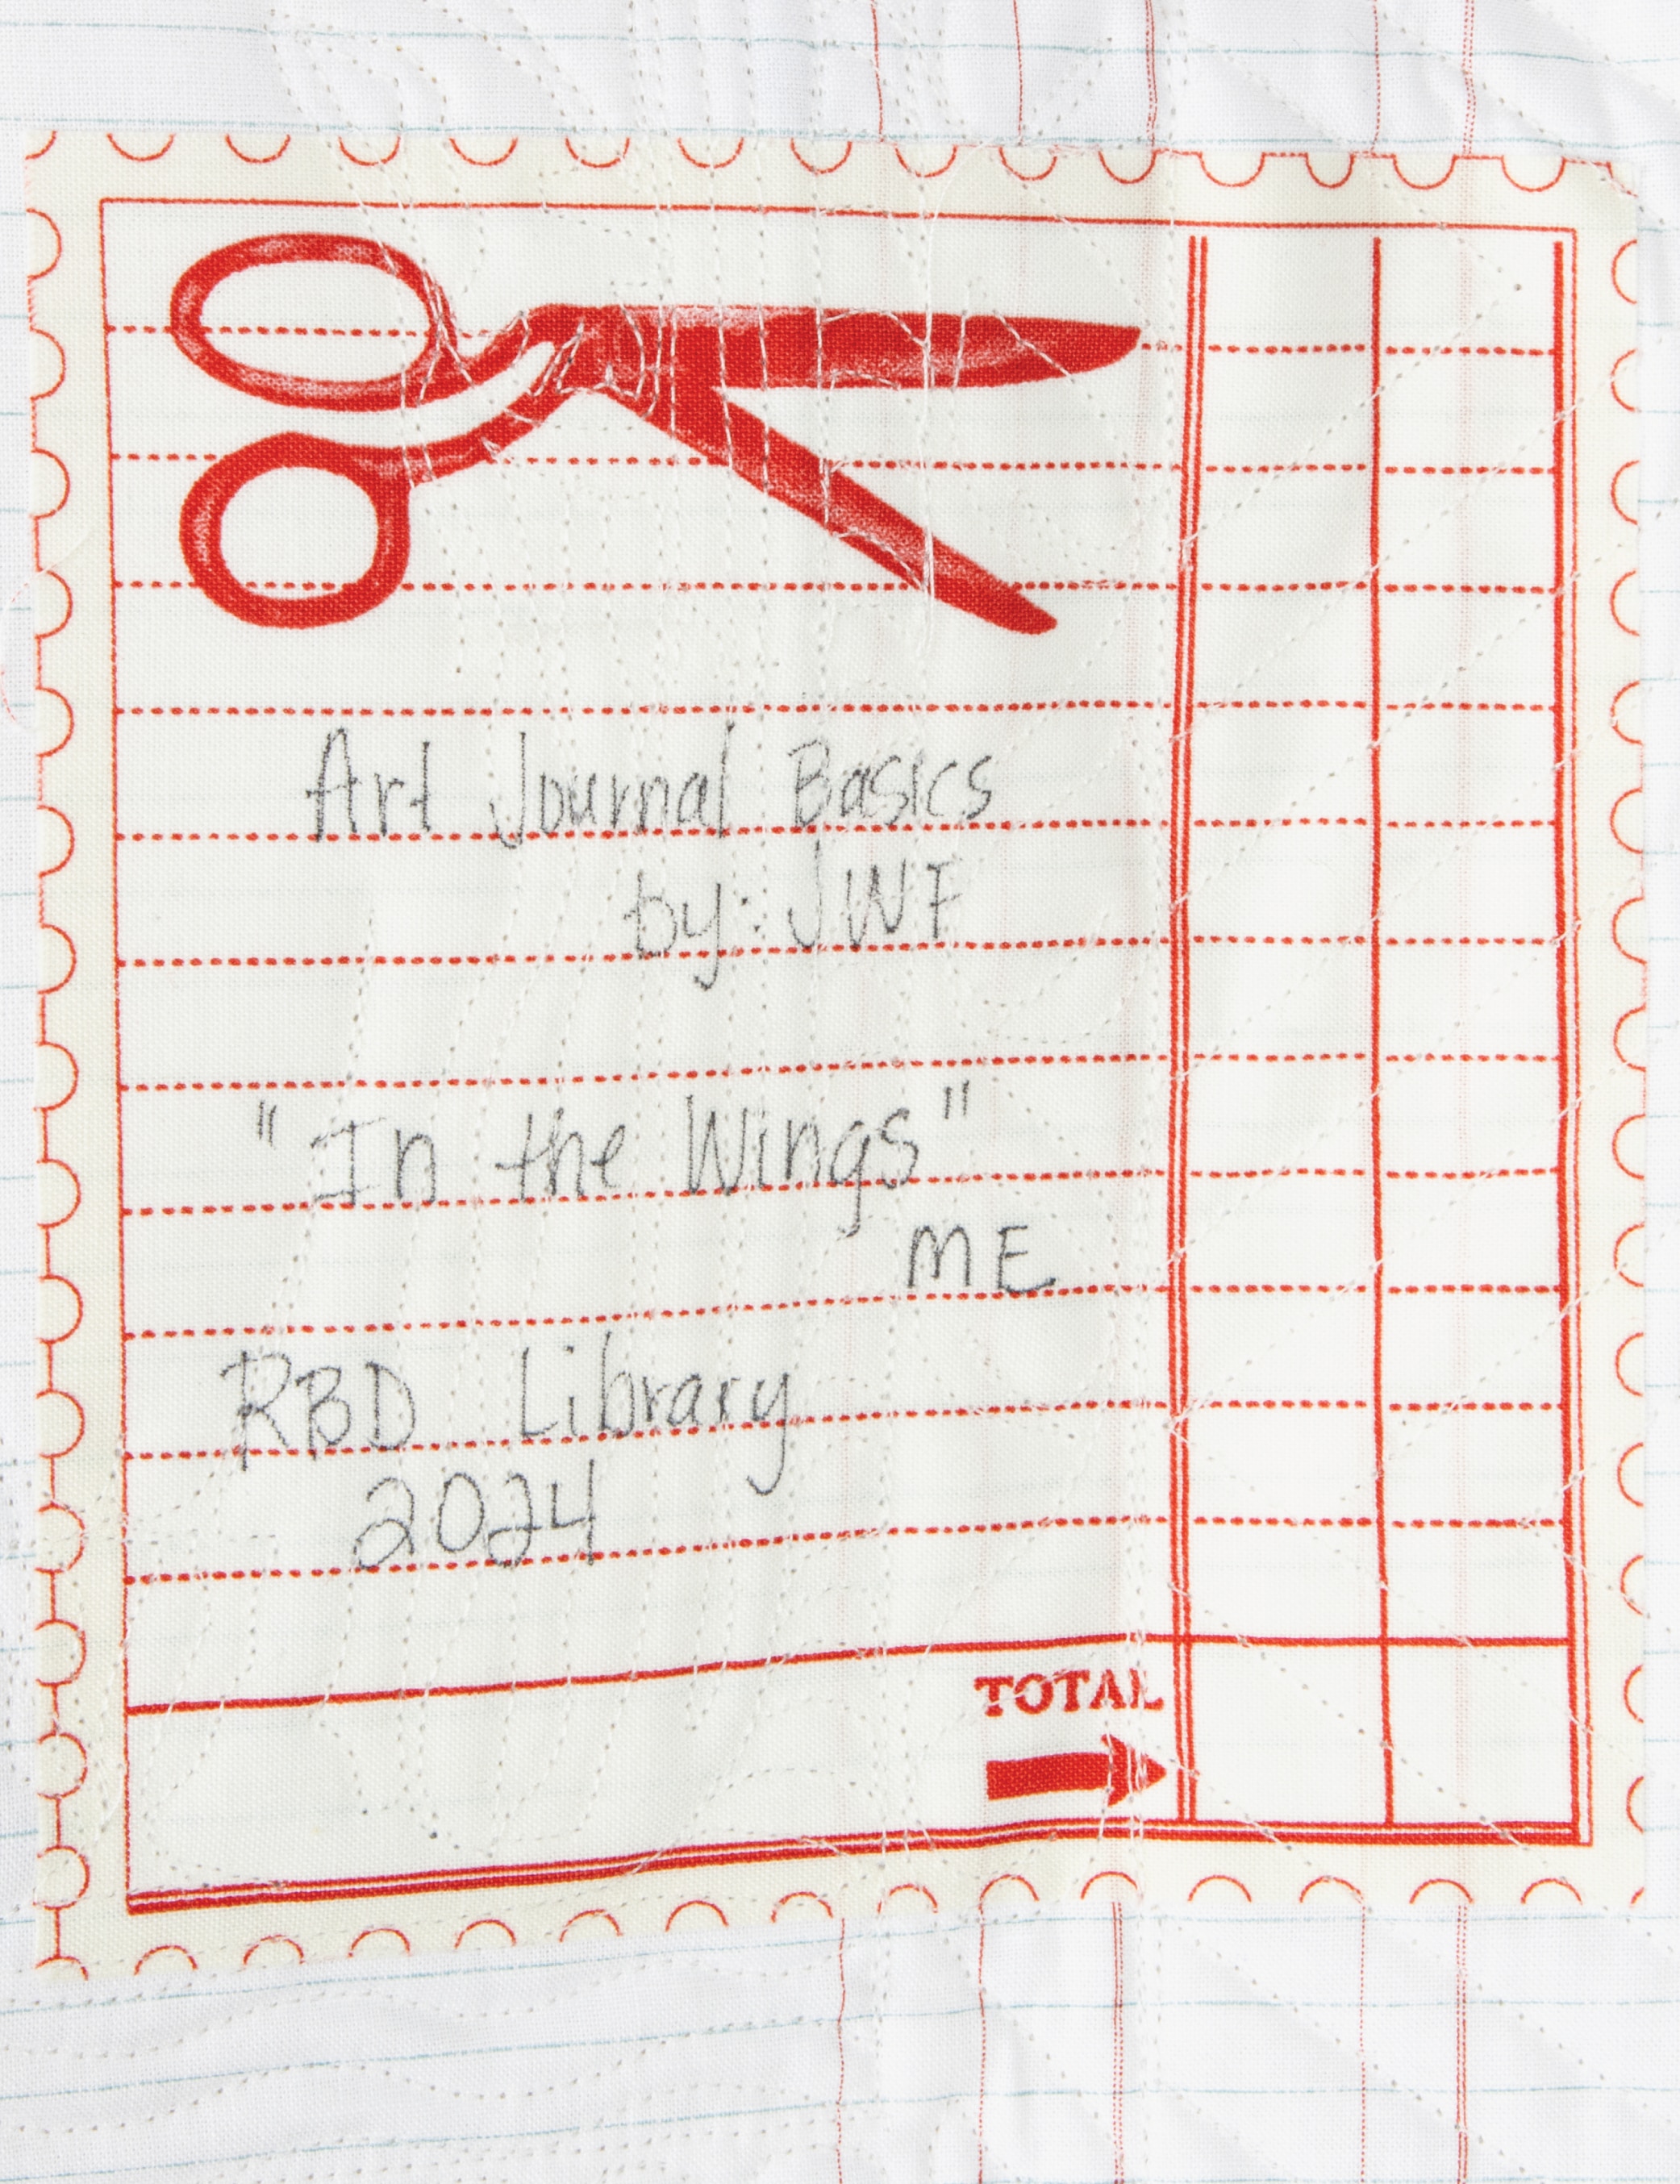 Art Journal Basics
by: JWF
"In the Wings"
ME
RBD Library
2024
TOTAL